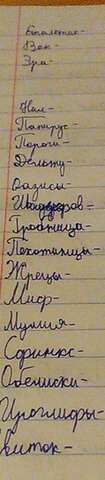 Век-
Эра-
Нил-
Папирус-
Пороги-
Дельта-
Оазисы-
Гробница-
Пехотинцы-
Жрецы-
Миф-
Мумия-
Сфинкс-
Обелиски-
Иероглифы-
виток-